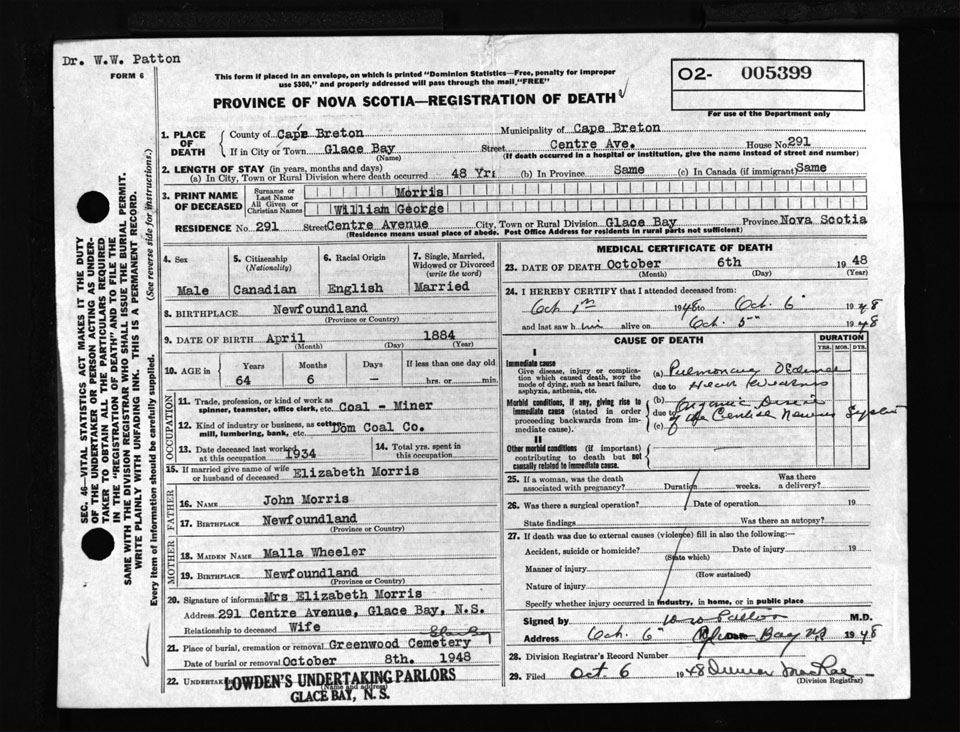 Dr. W.W. Patton
FORM 6
This form if placed in an envelope, on which is printed "Dominion Statistics—Free, penalty for improper
use $300," and properly addressed will pass through the mail "FREE"
O2- 005399
For use of the Department only
PROVINCE OF NOVA SCOTIA—REGISTRATION OF DEATH
1. PLACE OF DEATH
County of Cape Breton Municipality of Cape Breton
If in City or Town Glace Bay Street Centre Ave. House No. 291
(Name) (If death occurred in a hospital or institution, give the name instead of street and number)
2. LENGTH OF STAY (in years, months and days)
(a) In City, Town or Rural Division where death occurred 48 Yrs (b) In Province Same (c) In Canada (if immigrant) Same
3. PRINT NAME OF DECEASED
Surname or Last Name Morris
All Given or Christian Names William George
RESIDENCE No. 291 Street Centre Avenue City, Town or Rural Division Glace Bay Province Nova Scotia
(Residence means usual place of abode. Post Office Address for residents in rural parts not sufficient)
4. Sex
Male
5. Citizenship
(Nationality)
Canadian
6. Racial Origin
English
7. Single, Married, Widowed or Divorced
(write the word)
Married
8. BIRTHPLACE Newfoundland
(Province or Country)
9. DATE OF BIRTH April 1884
(Month) (Day) (Year)
10. AGE in Years Months Days If less than one day old
64 6 – hrs. or min.
OCCUPATION
11. Trade, profession, or kind of work as
spinner, teamster, office clerk, etc. Coal - Miner
12. Kind of industry or business, as cotton
mill, lumbering, bank, etc. Dom Coal Co.
13. Date deceased last worked
at this occupation 1934
14. Total yrs. spent in
this occupation
15. If married give name of wife
or husband of deceased Elizabeth Morris
FATHER
16. NAME John Morris
17. BIRTHPLACE Newfoundland
(Province or Country)
MOTHER
18. MAIDEN NAME Malla Wheeler
19. BIRTHPLACE Newfoundland
(Province or Country)
20. Signature of informant Mrs Elizabeth Morris
Address 291 Centre Avenue, Glace Bay, N.S.
Relationship to deceased Wife
Glace Bay
21. Place of burial, cremation or removal Greenwood Cemetery
Date of burial or removal October 8th. 1948
22. Undertaker LOWDEN'S UNDERTAKING PARLORS
(Name and address)
GLACE BAY, N. S.
MEDICAL CERTIFICATE OF DEATH
23. DATE OF DEATH October 6th 1948
(Month) (Day) (Year)
24. I HEREBY CERTIFY that I attended deceased from:
Oct 1st 1948 to Oct. 6 1948
and last saw him alive on Oct. 5th 1948
CAUSE OF DEATH
DURATION
YRS. MOS. DYS.
I
Immediate cause
Give disease, injury or complica-
tion which caused death, not the
mode of dying, such as heart failure,
asphyxia, asthenia, etc.
(a) Pulmonary Oedema
due to Heart Weakness
Morbid conditions, if any, giving rise to
immediate cause (stated in order
proceeding backwards from im-
mediate cause).
(b) Organic Disease
due to
(c) of the Central Nervous System
II
Other morbid conditions (if important)
contributing to death but not
causally related to immediate cause.
25. If a woman, was the death
associated with pregnancy? Duration weeks. Was there
a delivery?
26. Was there a surgical operation? Date of operation 19
State findings Was there an autopsy?
27. If death was due to external causes (violence) fill in also the following:—
Accident, suicide or homicide? Date of injury 19
(State which)
Manner of injury
(How sustained)
Nature of injury
Specify whether injury occurred in industry, in home, or in public place
Signed by W W Patton M.D.
Address Oct. 6 Glace Bay N.S 1948
28. Division Registrar's Record Number
29. Filed Oct. 6 1948 MacRae
(Division Registrar)
SEC. 46—VITAL STATISTICS ACT MAKES IT THE DUTY
OF THE UNDERTAKER OR PERSON ACTING AS UNDER-
TAKER TO OBTAIN ALL THE PARTICULARS REQUIRED
IN THE "REGISTRATION OF DEATH" AND TO FILE THE
SAME WITH THE DIVISION REGISTRAR WHO SHALL ISSUE THE BURIAL PERMIT.
WRITE PLAINLY WITH UNFADING INK. THIS IS A PERMANENT RECORD.
Every item of Information should be carefully supplied. (See reverse side for instructions.)